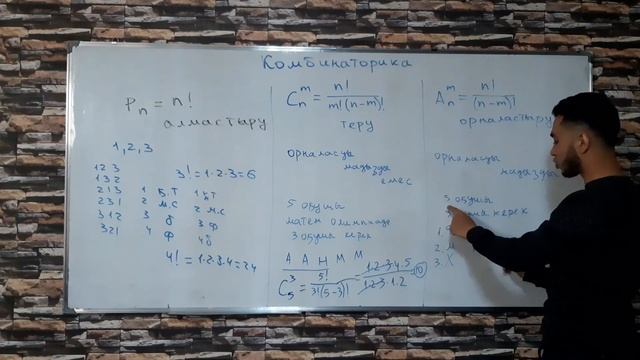 Комбинаторика
Pn = n!
алмастыру
1, 2, 3
123
132
213
231
312
321
3! = 1·2·3 = 6
1 Б.Т
2 М.С
3 б
4 Ф
1 БТ
2 М.С
3 Ф
4 б
4! = 1·2·3·4 = 24
C_n^m = n! / m!(n-m)!
теру
орналасуы
маңызды
емес
5 оқушы
матем олимпиада
3 оқушы керек
А А Н М М
C_5^3 = 5! / 3!(5-3)! = 1·2·3·4·5 / 1·2·3·1·2 = 10
A_n^m = n! / (n-m)!
орналастыру
орналасуы
маңызды
5 оқушы
керек
2. М
3. Х